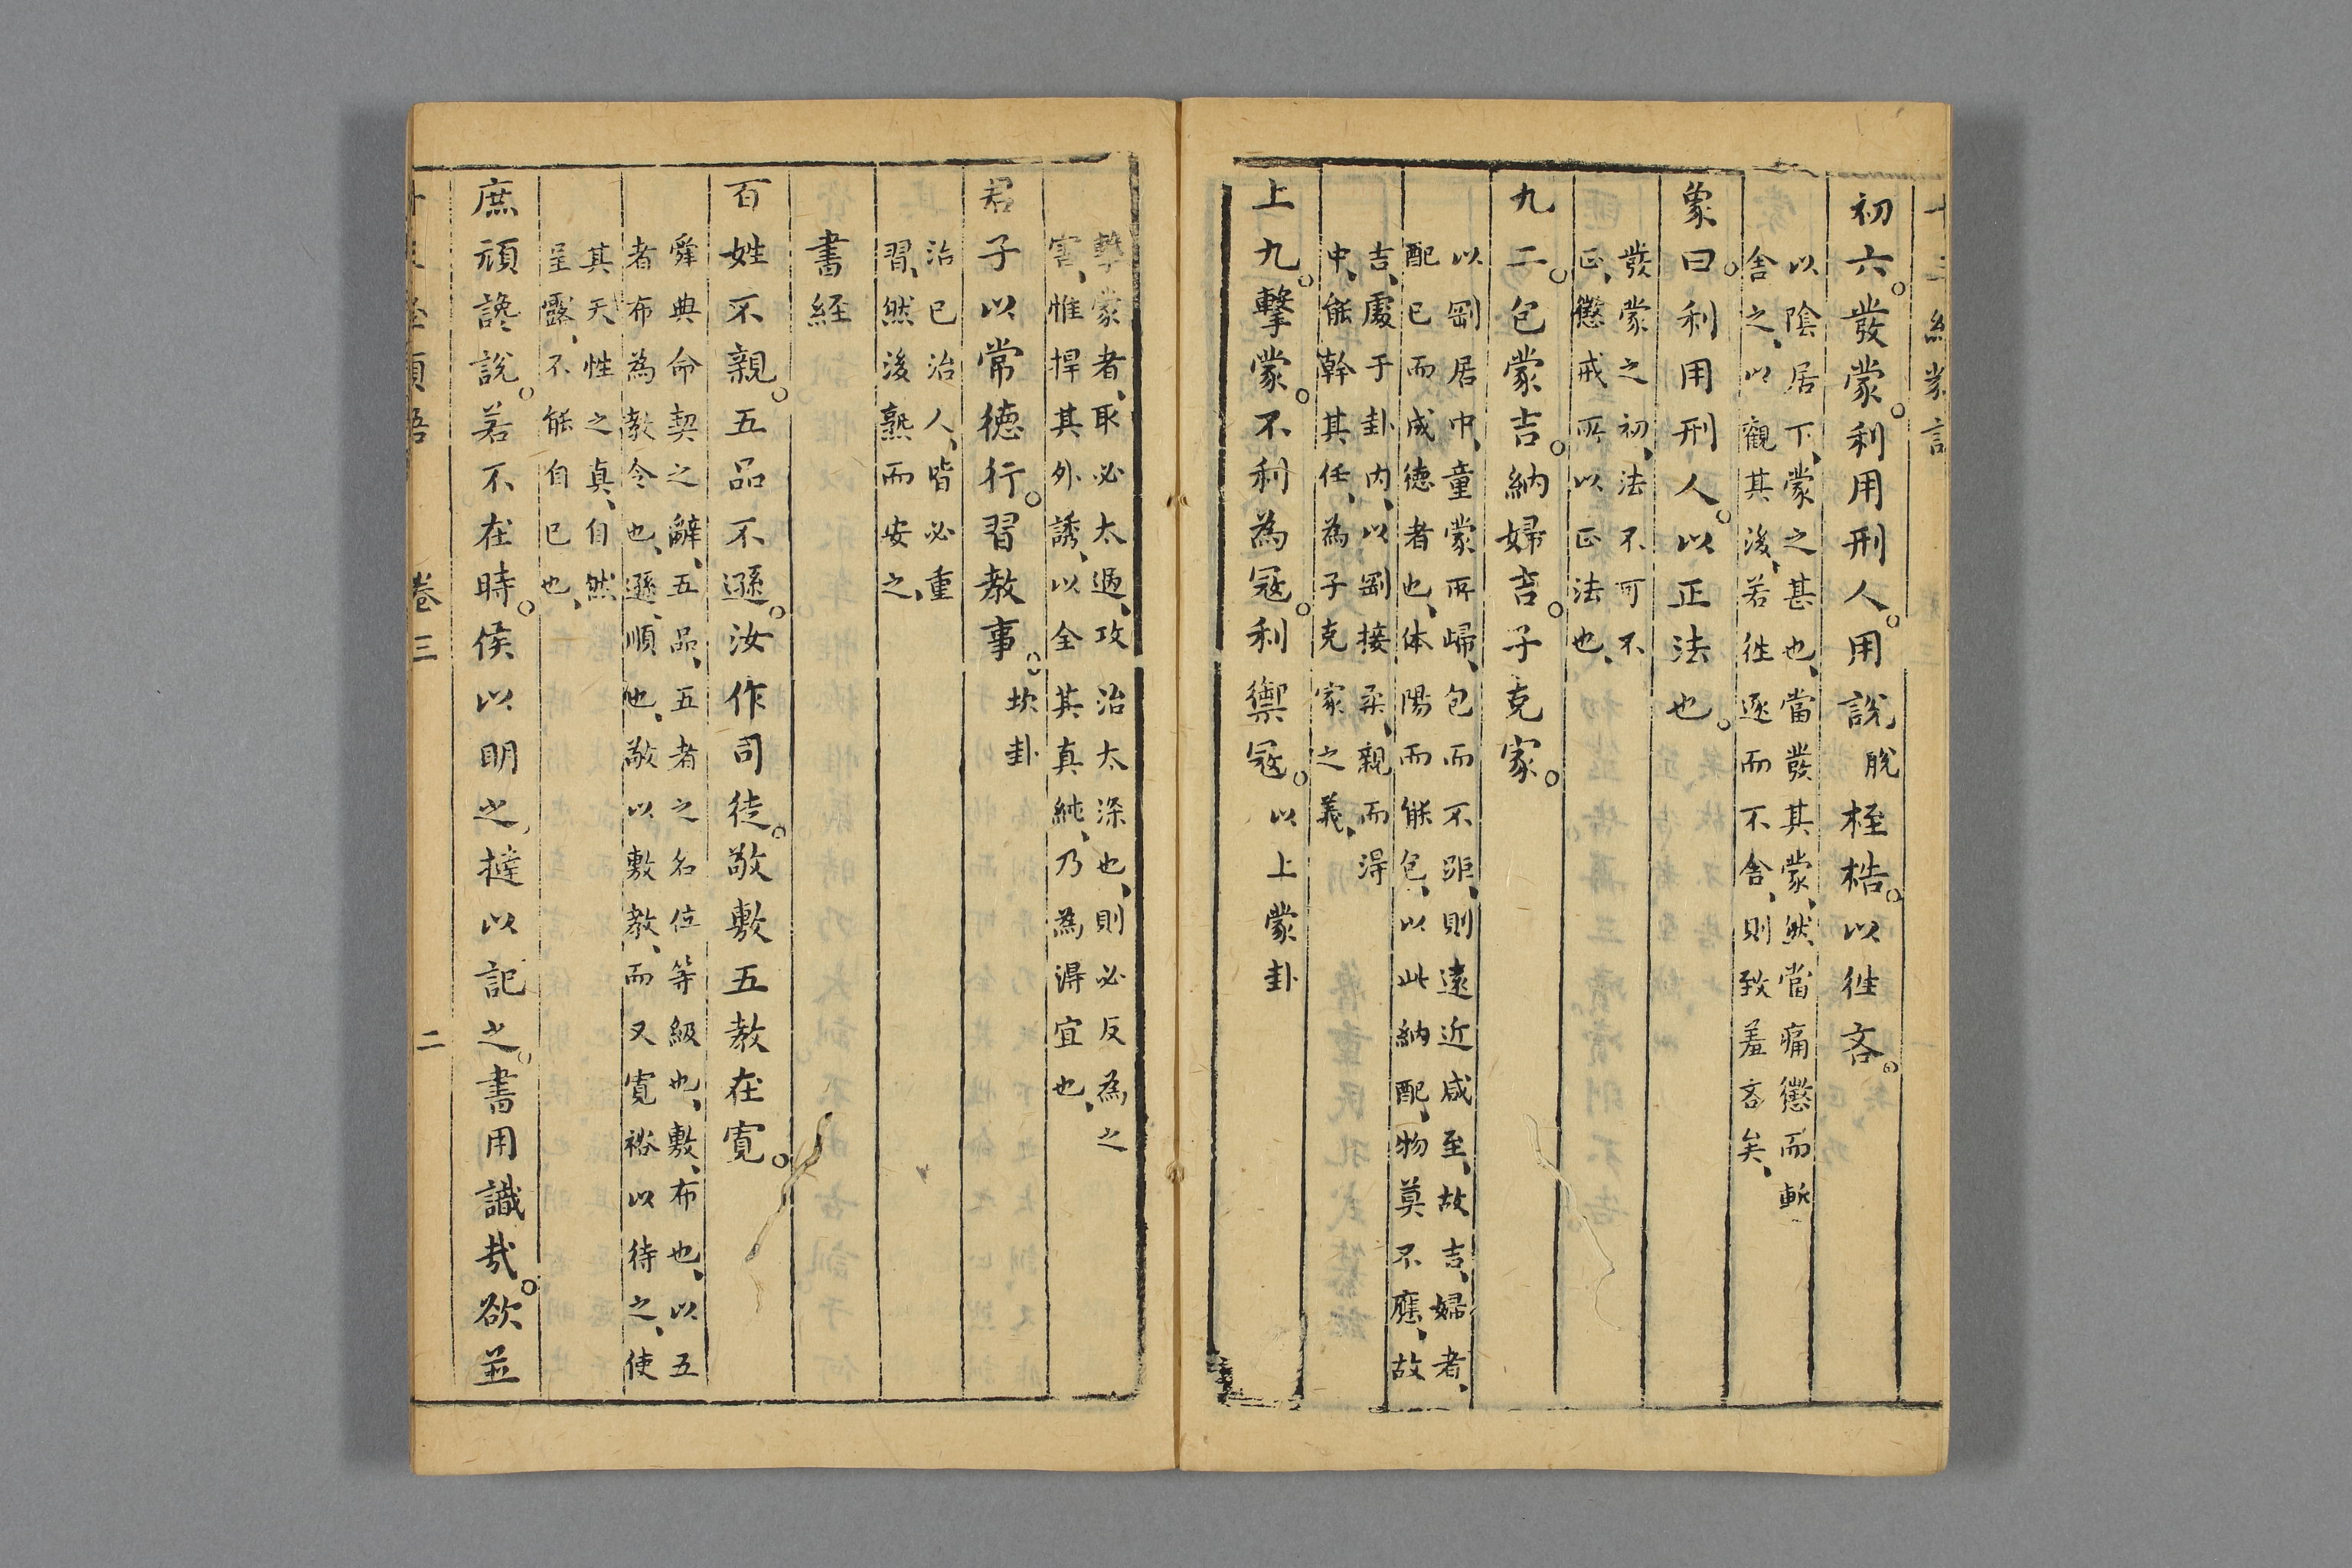 初六。發蒙。利用刑人。用說脫桎梏。以徃吝。
以陰居下、蒙之甚也、當發其蒙、然當痛懲而暫
舎之、以觀其後、若徃逐而不舎、則致羞吝矣、
象曰。利用刑人。以正法也。
發蒙之初、法不可不
正、懲戒所以正法也、
九二。包蒙吉。納婦吉。子克家。
以剛居中、童蒙所歸、包而不距、則遠近咸至、故吉、婦者、
配已而成德者也、体陽而能包、以此納配、物莫不應、故
吉、處于卦内、以剛接柔、親而得
中、能幹其任、為子克家之義、
上九。擊蒙。不利為冦。利禦冦。以上蒙卦
擊蒙者、取必太過、攻治太深也、則必反為之
害、惟捍其外誘、以全其真純、乃為得宜也、
君子以常德行。習教事。坎卦
治已治人、皆必重
習、然後熟而安之、
書経
百姓不親。五品不遜。汝作司徒。敬敷五教在寬。
舜典命契之辭、五品、五者之名位等級也、敷、布也、以五
者布為教令也、遜、順也、敬以敷教、而又寬裕以待之、使
其天性之真、自然
呈露、不能自已也、
庶頑讒說。若不在時。侯以明之、撻以記之。書用識哉。欲並
卷三
二